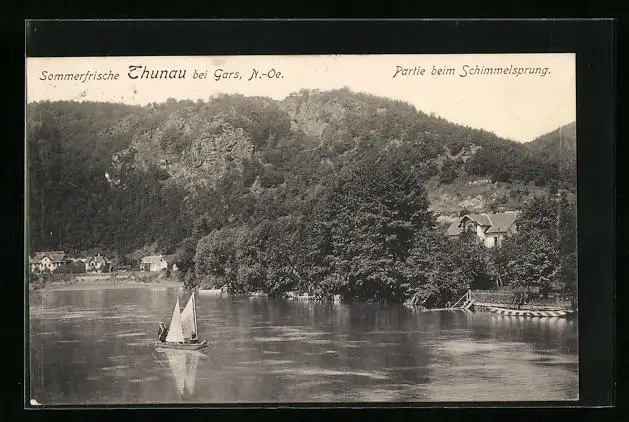 Sommerfrische Thunau bei Gars, N.-Oe. Partie beim Schimmelsprung.